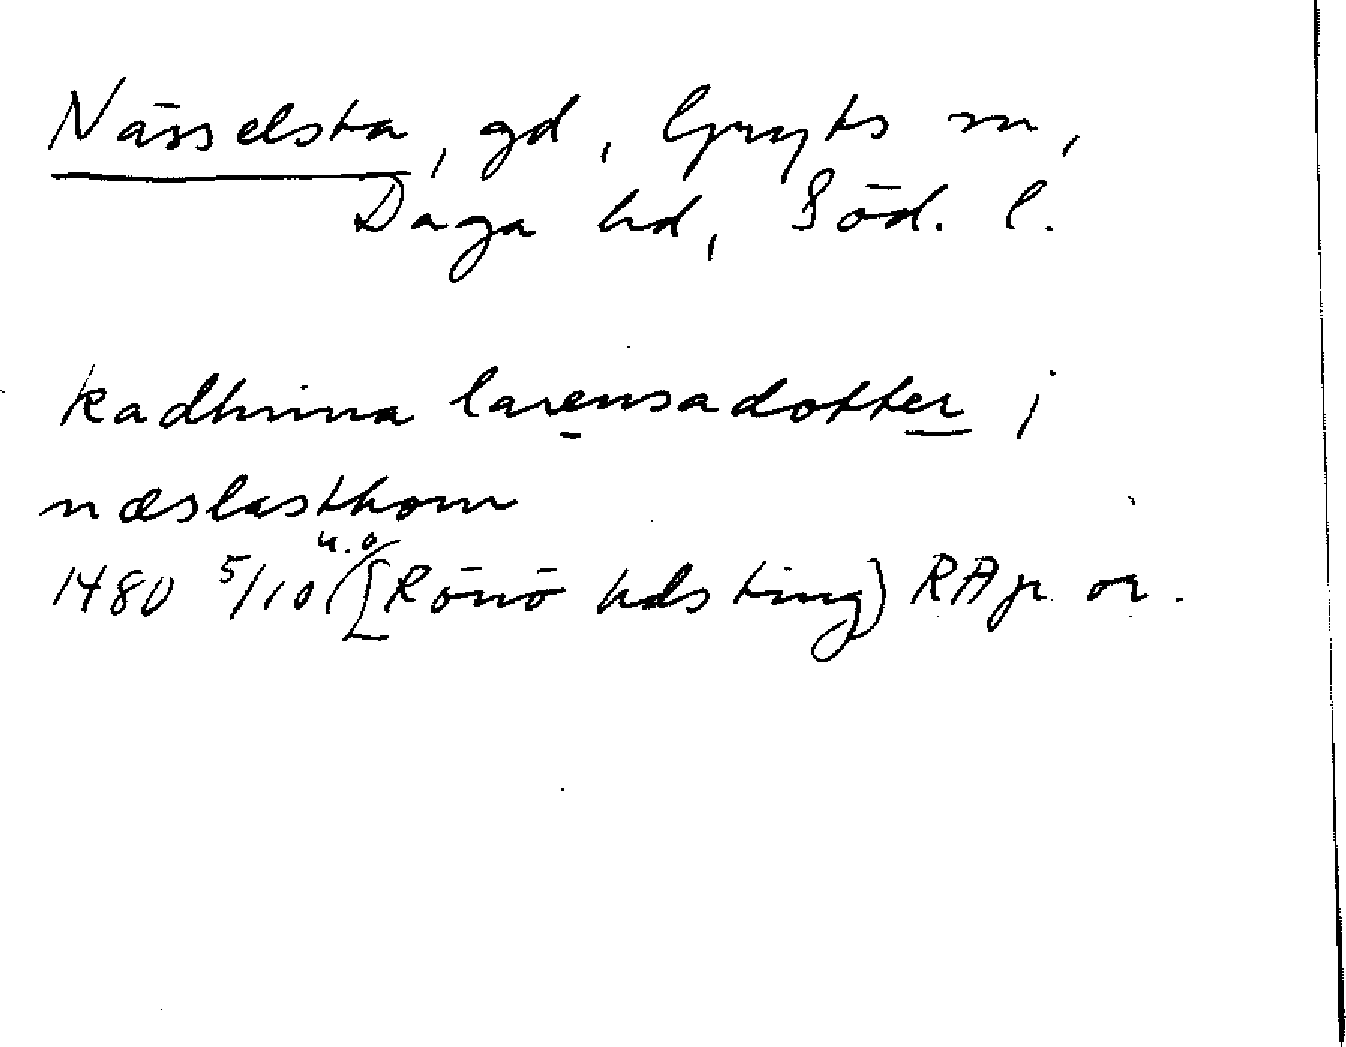 Nässelsta, gd, Gryts sn,
Daga hd, Söd. l.
kadhrina larensadotter i
næslasthom
u.o
1480 5/10 ([Rönö hds ting) RAp or.